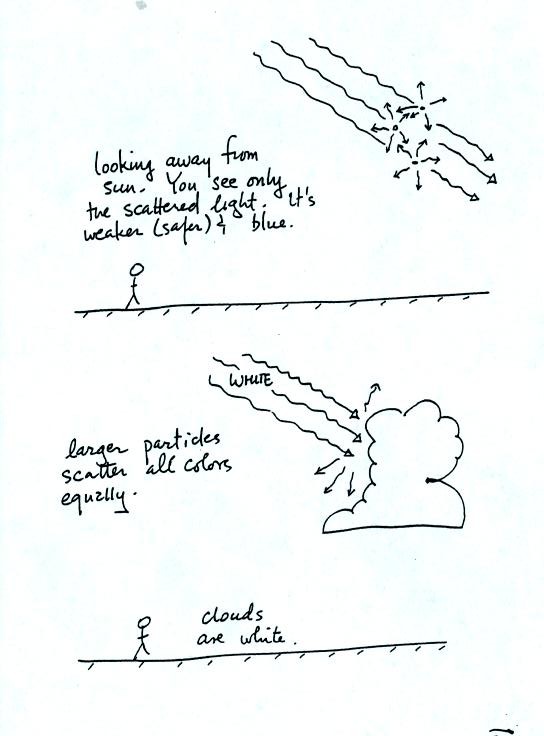 looking away from
sun. You see only
the scattered light. It's
weaker (safer) & blue.
WHITE
larger particles
scatter all colors
equally.
clouds
are white.